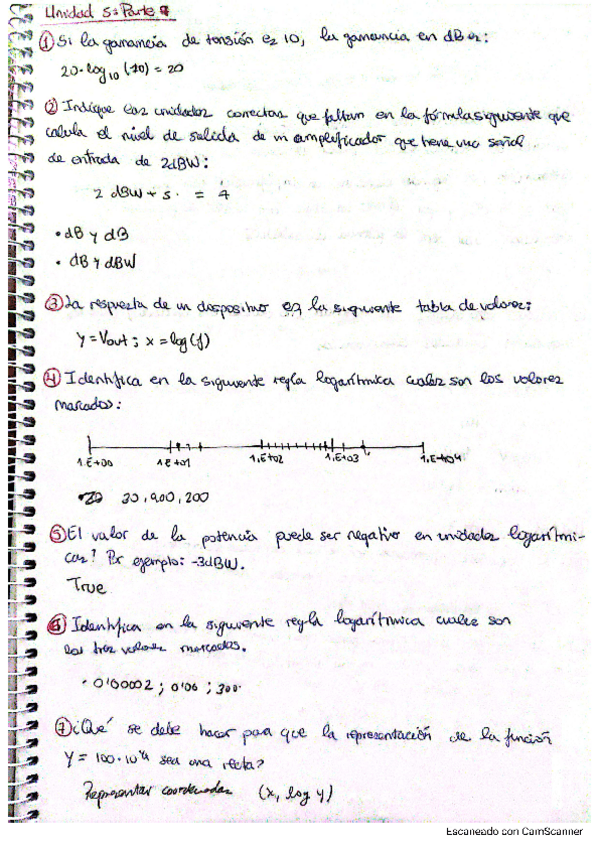 Unidad 5: Parte 7
① Si la ganancia de tensión es 10, la ganancia en dB es:
20·log10 (10) = 20
② Indique las unidades correctas que faltan en la fórmula siguiente que
calcula el nivel de salida de un amplificador que tiene una señal
de entrada de 2dBW:
2 dBW + 5 · = 7
• dB y dB
• dB y dBW
③ La respuesta de un dispositivo es la siguiente tabla de valores:
y = Vout ; x = log(f)
④ Identifica en la siguiente regla logarítmica cuales son los valores
marcados:
1.E+00 1.E+01 1.E+02 1.E+03 1.E+04
30, 900, 200
⑤ El valor de la potencia puede ser negativo en unidades logarítmi-
cas? Por ejemplo: -3dBW.
True
⑥ Identifica en la siguiente regla logarítmica cuales son
los tres valores marcados.
· 0'00002 ; 0'06 ; 300·
⑦ ¿Qué se debe hacer para que la representación de la función
Y = 100·10 sea una recta?
Representar coordenadas (x, log y)
Escaneado con CamScanner